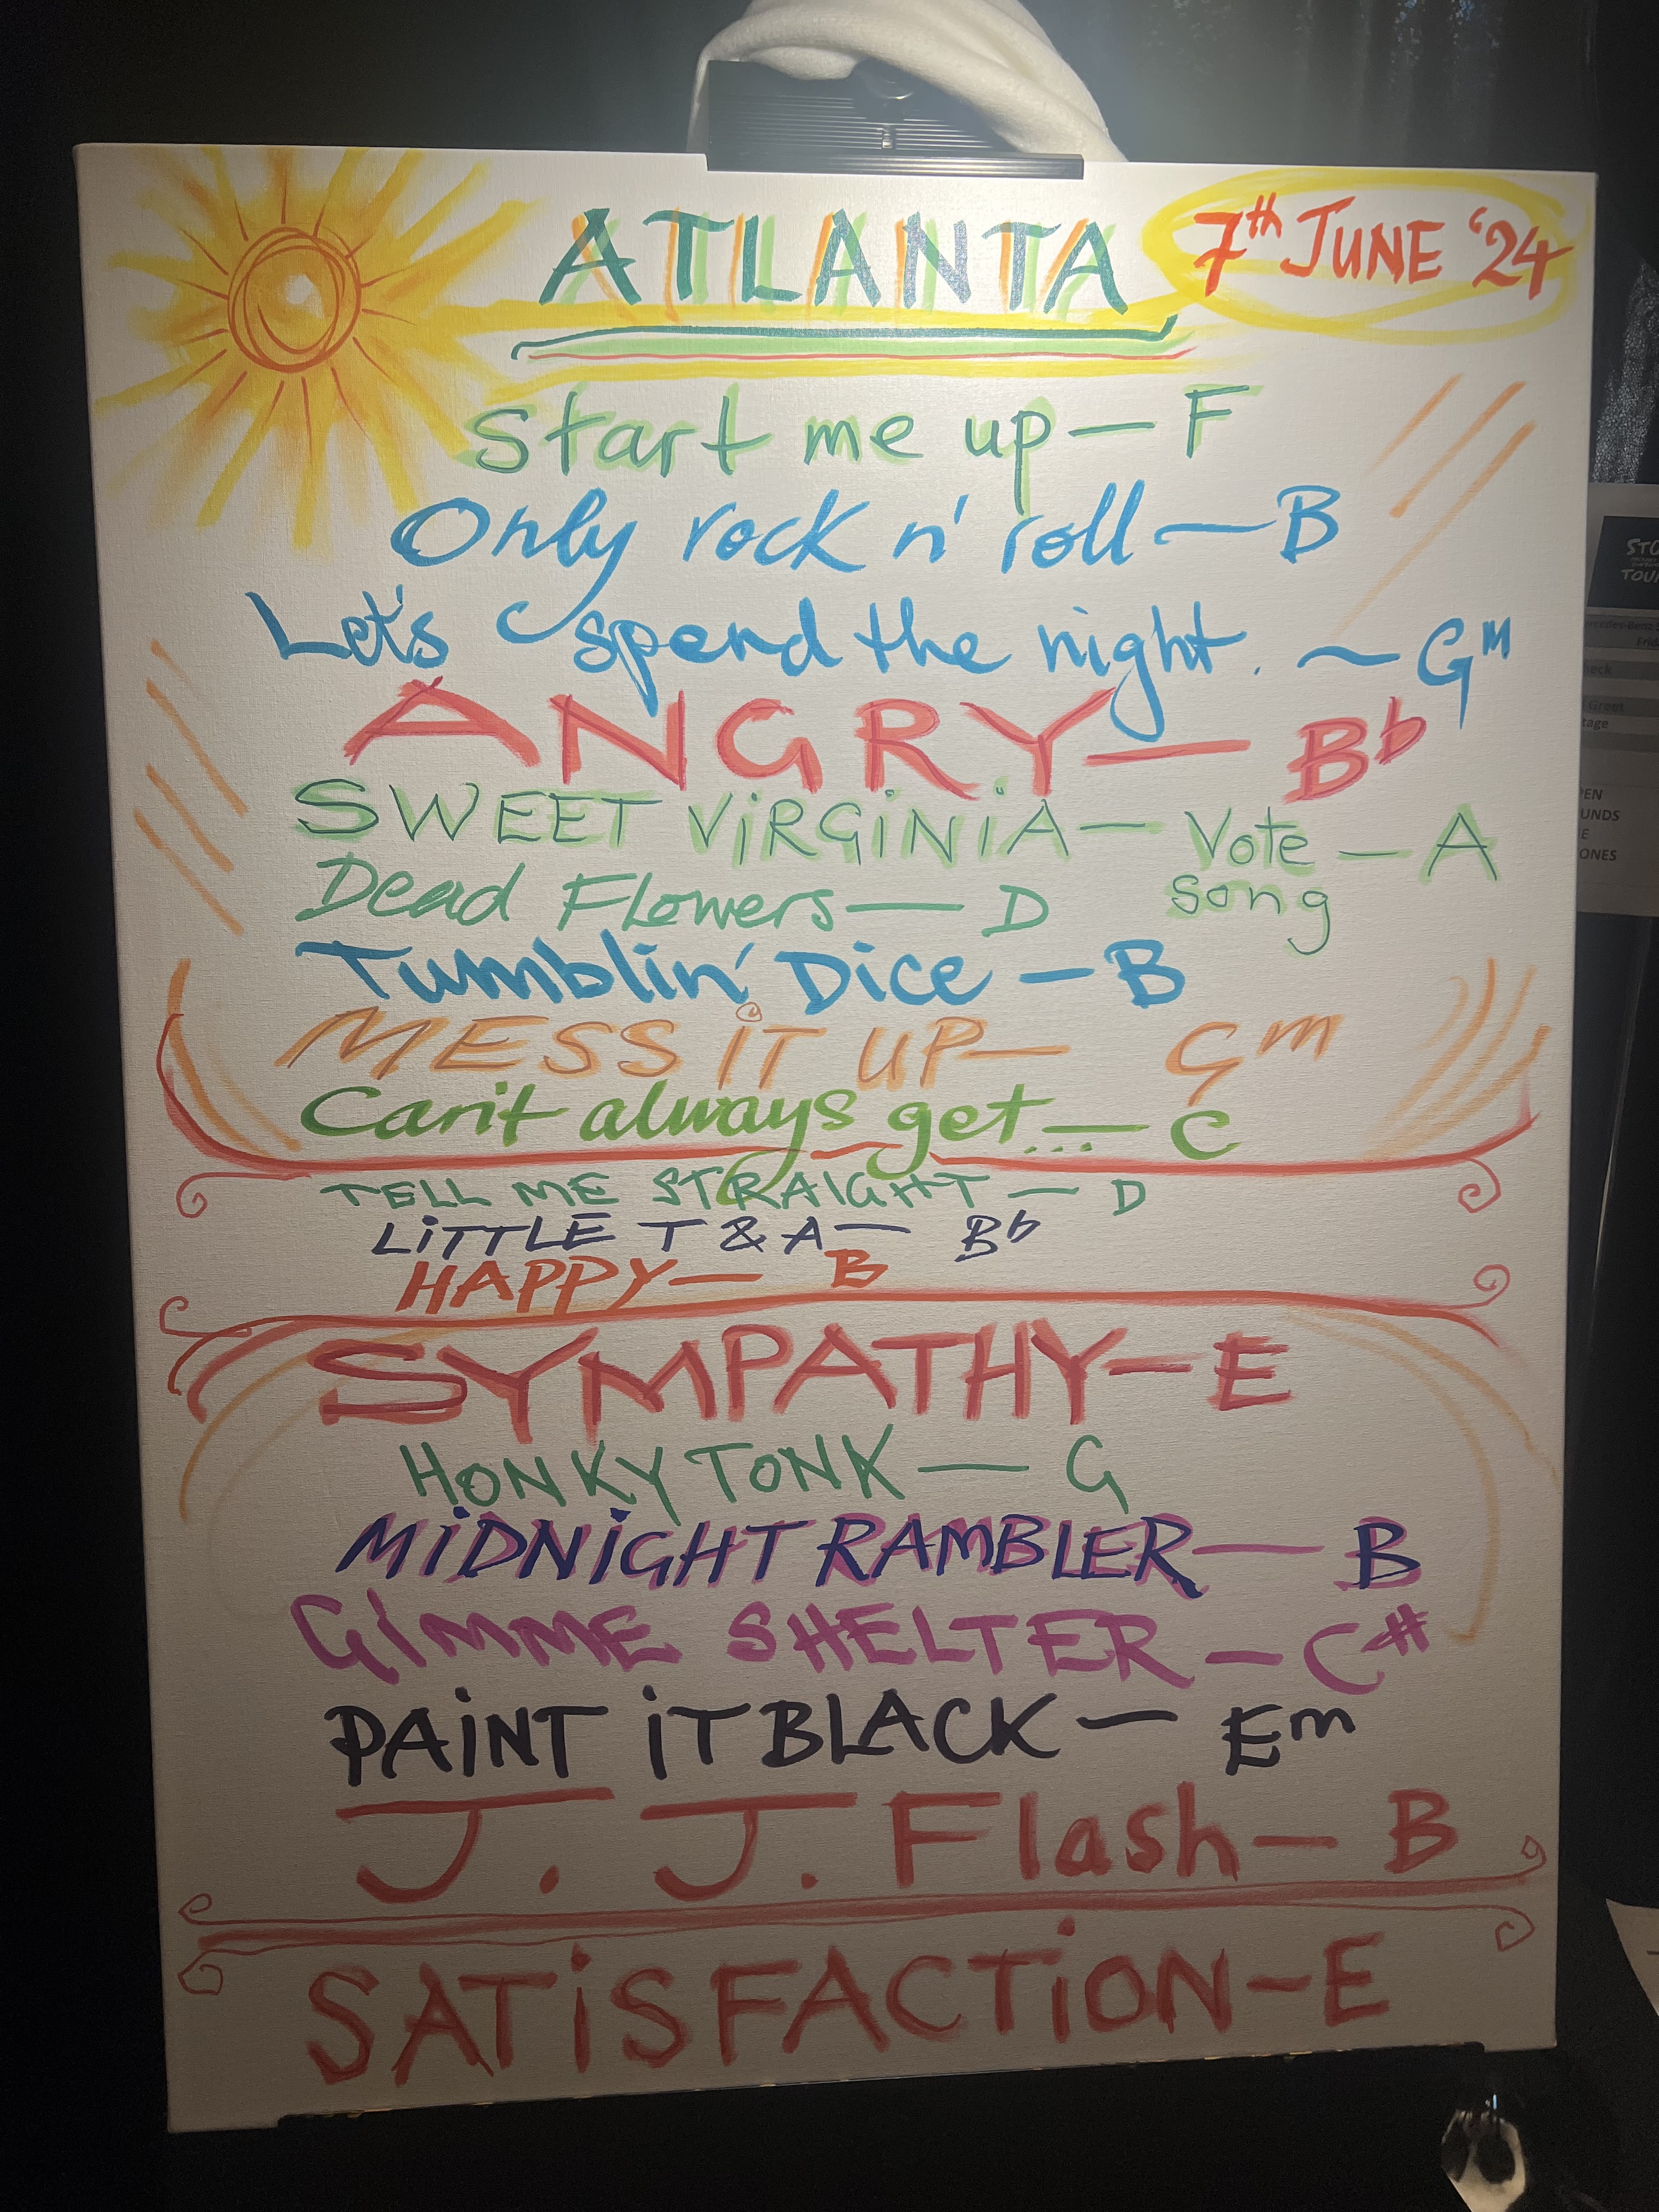 ATLANTA
7th JUNE '24
Start me up — F
Only rock n' roll — B
Let's spend the night. ~ Gm
ANGRY — Bb
SWEET ViRGiNiA — Vote song — A
Dead Flowers — D
Tumblin' Dice — B
MESS iT UP — Gm
Can't always get... — C
TELL ME STRAIGHT — D
LiTTLE T & A — Bb
HAPPY — B
SYMPATHY — E
HONKY TONK — G
MiDNiGHT RAMBLER — B
GIMME SHELTER — C#
PAiNT iT BLACK — Em
J. J. Flash — B
SATiSFACTiON — E